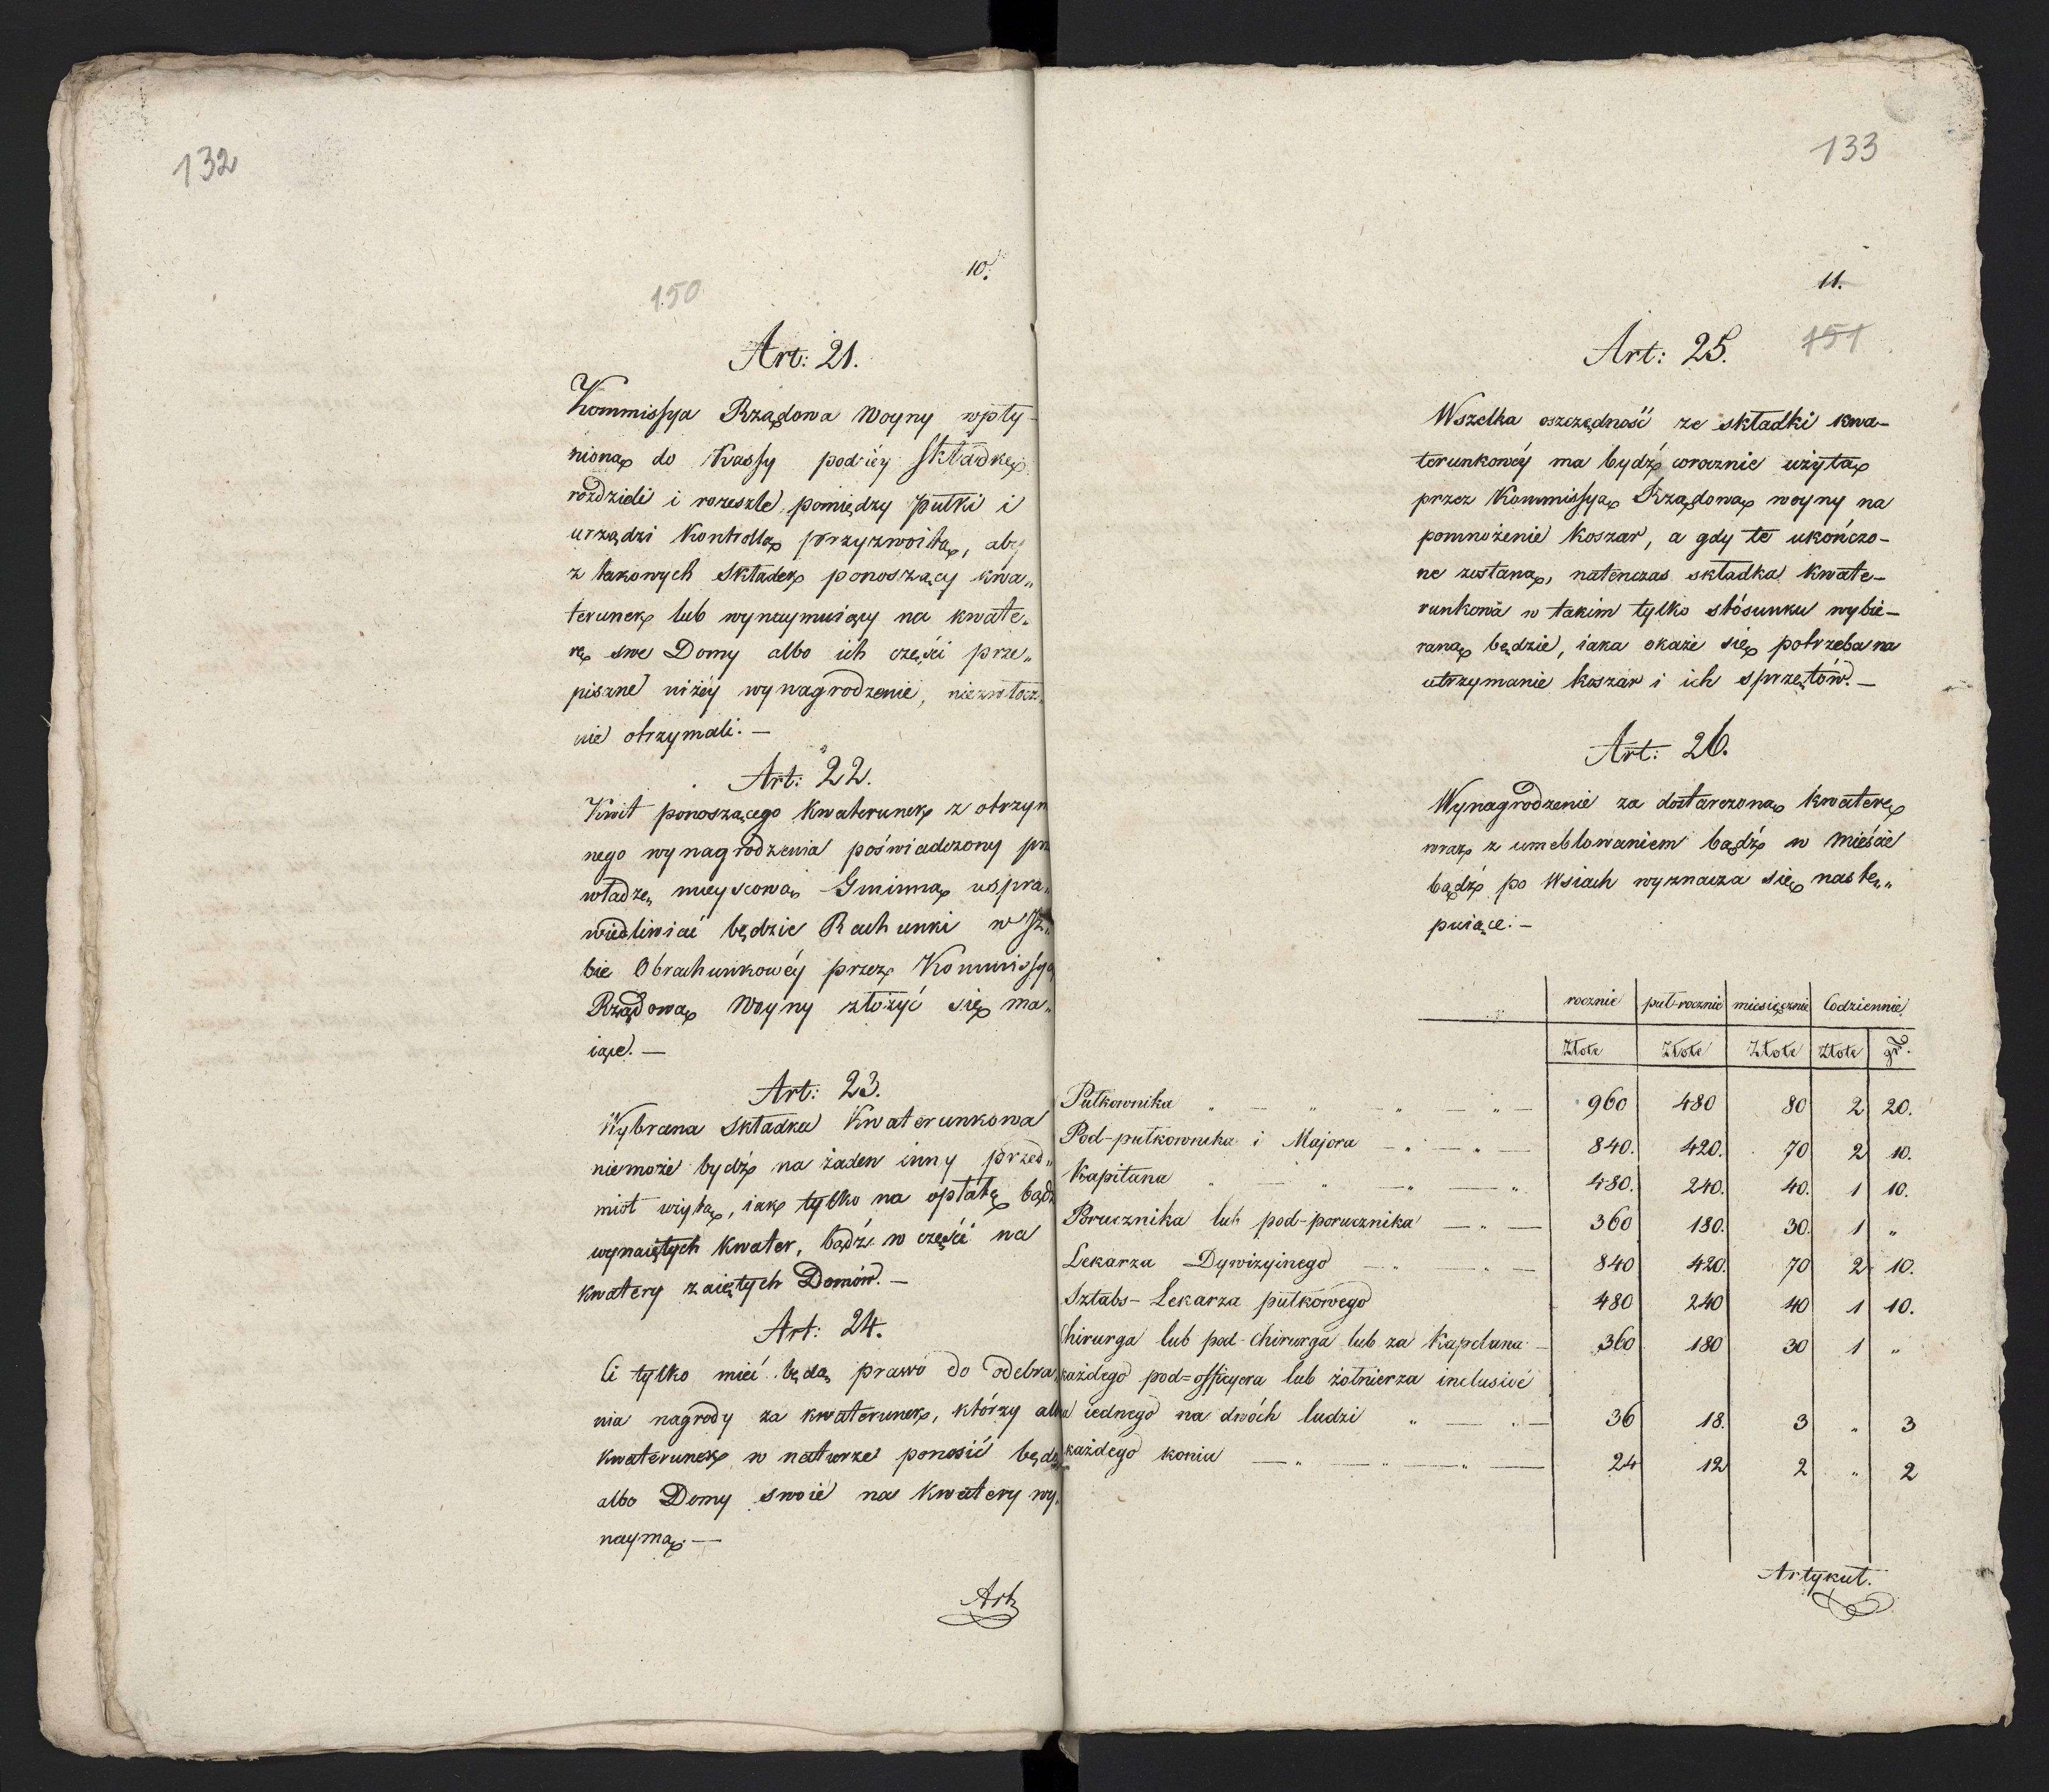 132
10.
150
Art: 21.
Kommissya Rządowa Woyny wpły-
nioną do Kassy podiéy składkę
rozdzieli i rozeszle pomiędzy pułki i
urządzi Kontrollę przyzwoitą, aby
z takowych składek ponoszący kwa„
terunek lub wynaymuiący na kwate„
rę swe Domy albo ich części prze„
pisane niżéy wynagrodzenie, niezwłocz„
nie otrzymali. —
Art: 22.
Kwit ponoszącego Kwaterunek z otrzym
nego wynagrodzenia poświadczony prz
władzę mieyscową Gminną uspra„
wiedliwiać będzie Rachunki w Iz„
bie Obrachunkowéy przez Kommissyą
Rządową Woyny złożyć się ma„
iące. —
Art: 23.
Wybrana składka Kwaterunkowa
niemoże bydź na żaden inny przed„
miot użytą, iak tylko na opłatę bądź
wynaiętych Kwater, bądź w części na
kwatery zaiętych Domów. —
Art: 24.
Ci tylko mieć będą prawo do odebra„
nia nagrody za kwaterunek, którzy albo
kwaterunek w naturze ponosić będą
albo Domy swoie na Kwatery wy„
naymą. —
Art
133
11.
151
Art: 25.
Wszelka oszczędność ze składki kwa-
terunkowéy ma bydź corocznie użytą
przez Kommissyą Rządową woyny na
pomnożenie koszar, a gdy te ukończo-
ne zostaną, natenczas składka kwate-
runkowa w takim tylko stósunku wybie-
raną będzie, iaka okaże się potrzeba na
utrzymanie koszar i ich sprzętów. —
Art: 26.
Wynagrodzenie za dostarczoną kwaterę
wraz z umeblowaniem bądź w mieście
bądź po wsiach wyznacza się nastę„
puiące: —
rocznie | puł-rocznie | miesięcznie | Codziennie
Złote | Złote | Złote | Złote | gr.
Pułkownika „ — „ — „ — „ — 960 480 80 2 20.
Pod-pułkownika i Majora — „ — „ — 840. 420. 70 2 10.
Kapitana „ — „ — „ — „ 480. 240. 40. 1 10.
Porucznika lub pod-porucznika — „ — 360 180. 30. 1 „
Lekarza Dywizyinego — „ — „ — 840 420. 70 2 10.
Sztabs-Lekarza pułkowego 480 240 40 1 10.
Chirurga lub pod-chirurga lub za Kapelana — 360 180 30 1 „
każdego pod=officyera lub żołnierza inclusive
iednego na dwóch ludzi „ — „ — 36 18. 3 „ 3
każdego konia — „ — „ — „ — 24 12 2 „ 2
Artykuł.